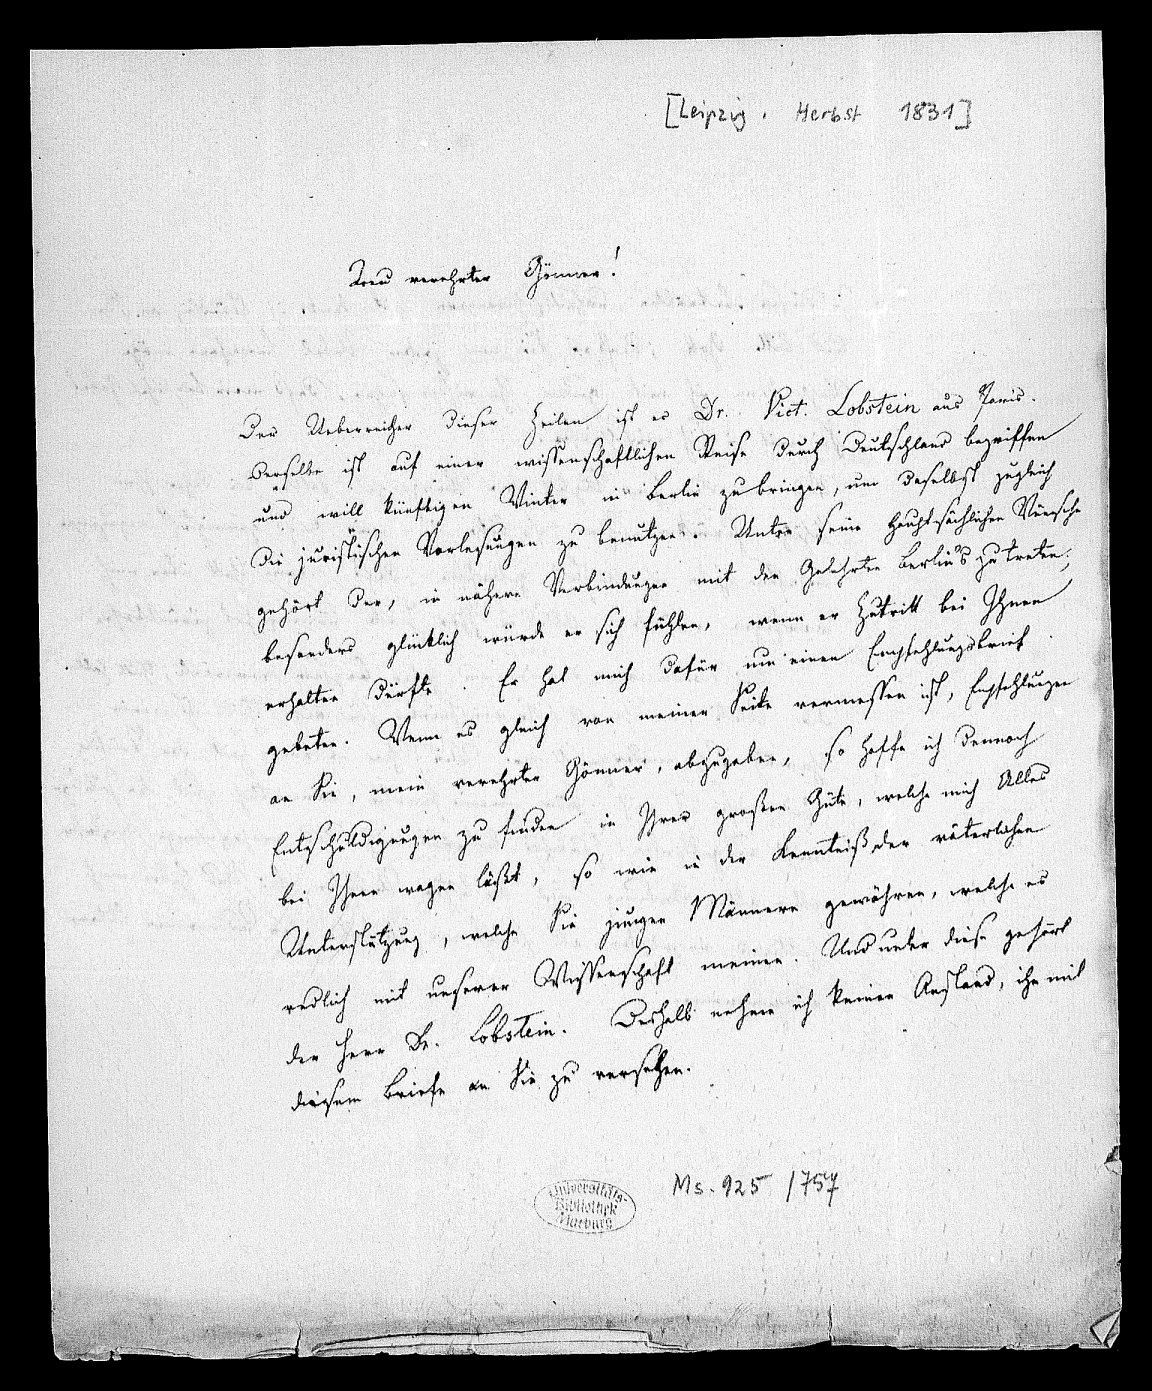 [Leipzig. Herbst 1831]
Treu verehrter Gönner!
Der Ueberreicher dieser Zeilen ist es Dr. Vict. Lobstein aus Paris.
Derselbe ist auf einer wissenschaftlichen Reise durch Deutschland begriffen
und will künftigen Winter in Berlin zubringen, um daselbst zugleich
die juristischen Vorlesungen zu benutzen. Unter seine hauptsächlichen Wünsche
gehört der, in nähere Verbindungen mit den Gelehrten Berlin's zu treten;
besonders glücklich würde er sich fühlen, wenn er Zutritt bei Ihnen
erhalten dürfte. Er hat mich dafür um einen Empfehlungsbrief
gebeten. Wenn es gleich von meiner Seite vermessen ist, Empfehlungen
an Sie, mein verehrter Gönner, abzugeben, so hoffe ich dennoch
Entschuldigungen zu finden in Ihrer großen Güte, welche mich Alles
bei Ihnen wagen läßt, so wie in der Kenntniß der väterlichen
Unterstützung, welche Sie jungen Männern gewähren, welche es
redlich mit unserer Wissenschaft meinen. Und unter diese gehört
der Herr Dr. Lobstein. Deshalb nehme ich keinen Anstand, ihn mit
diesem Briefe an Sie zu versehen.
Universitäts-
Bibliothek
Marburg
Ms. 925/757